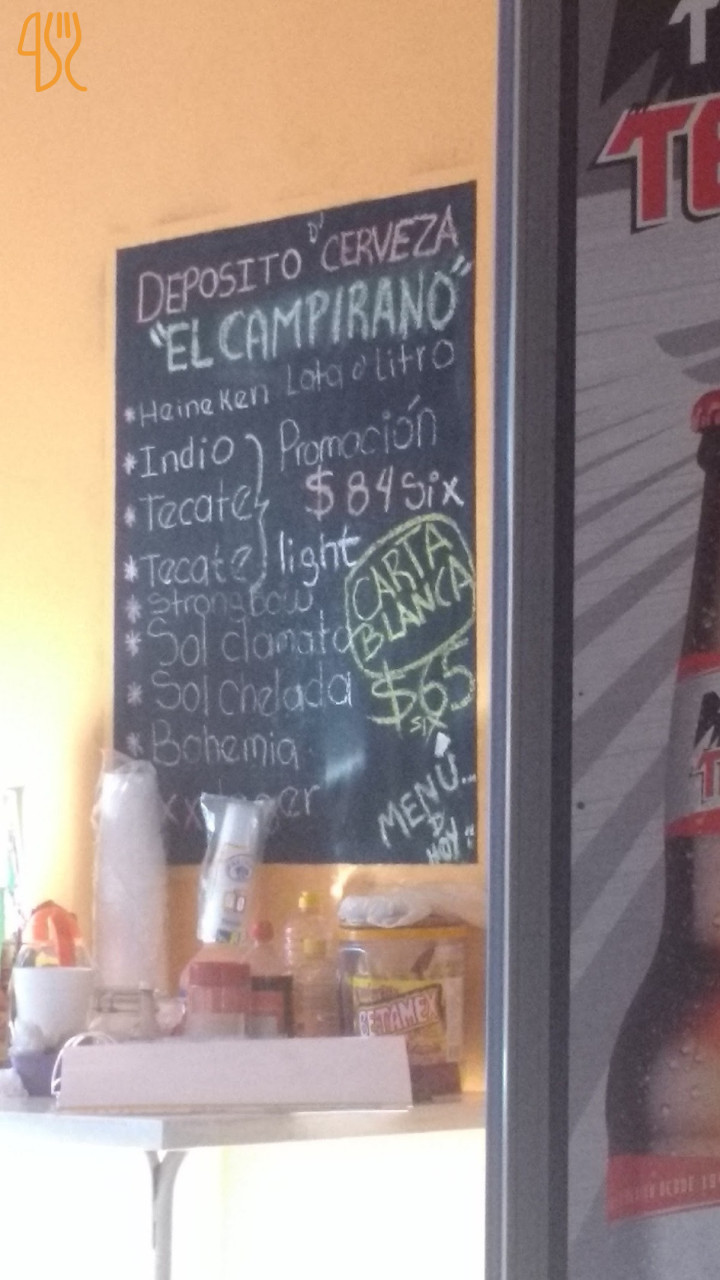 DEPOSITO D' CERVEZA
"EL CAMPIRANO"
*Heineken Lata o' litro
*Indio } Promoción
*Tecate $84 Six
*Tecate light
*Strongbow
*Sol clamato
*Sol chelada
*Bohemia
xx lager
CARTA
BLANCA
$65
SIX
MENÚ...
D'
HOY
BETAMEX
TE
DESDE